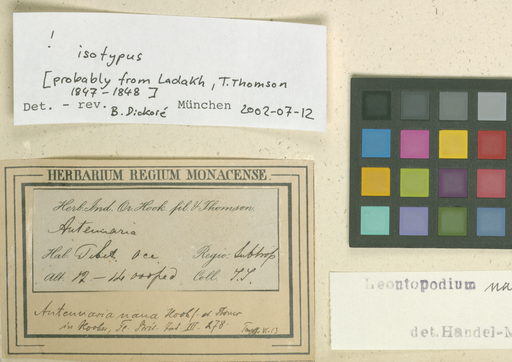 ! isotypus
[probably from Ladakh, T. Thomson
1847-1848 ]
Det. - rev. B. Dickoré München 2002-07-12
HERBARIUM REGIUM MONACENSE.
Herb. Ind. Or. Hook. fil. & Thomson.
Antennaria
Hab. Tibet. occ. Regio Subtrop
Alt. 12-14000 ped Coll. T.T.
Antennaria nana Hook f. et
in Hook. Fl. Brit. Ind. III. 278
Leontopodium na
det. Handel-M